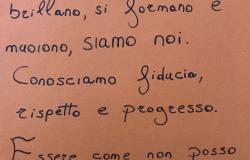 brillano, si formano e
muoiono, siamo noi.
Conosciamo fiducia,
rispetto e progresso.
Essere come non posso